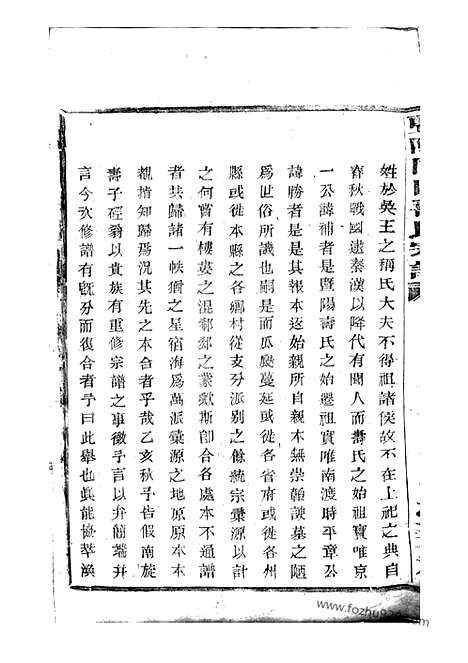 姓於吳王之稱氏大夫不得祖諸侯故不在上祀之典自
春秋戰國逮秦漢以降代有聞人而壽氏之始祖實唯京
一公諱補者是暨陽壽氏之始遷祖實唯南渡時平章公
諱勝者是是其報本返始親所自親本無崇韓謨墓之陋
爲世俗所譏也嗣是而瓜瓞蔓延或徙各省府或徙各州
縣或徙本縣之各鄉村從支分派別之餘統宗彙源以計
之何嘗有樓婁之混鄣之業歟斯卽合各處本不通譜
者共歸諸一帙猶之星宿海爲萬派彙源之地原原本本
觀揩知歸爲況其先之本合者乎哉乙亥秋予告假南旋
壽子硜翁以貴族有重修宗譜之事徵予言以弁簡端并
言今次修譜有旣分而復合者予曰此舉也眞能協萃渙
www.fozhu920.com